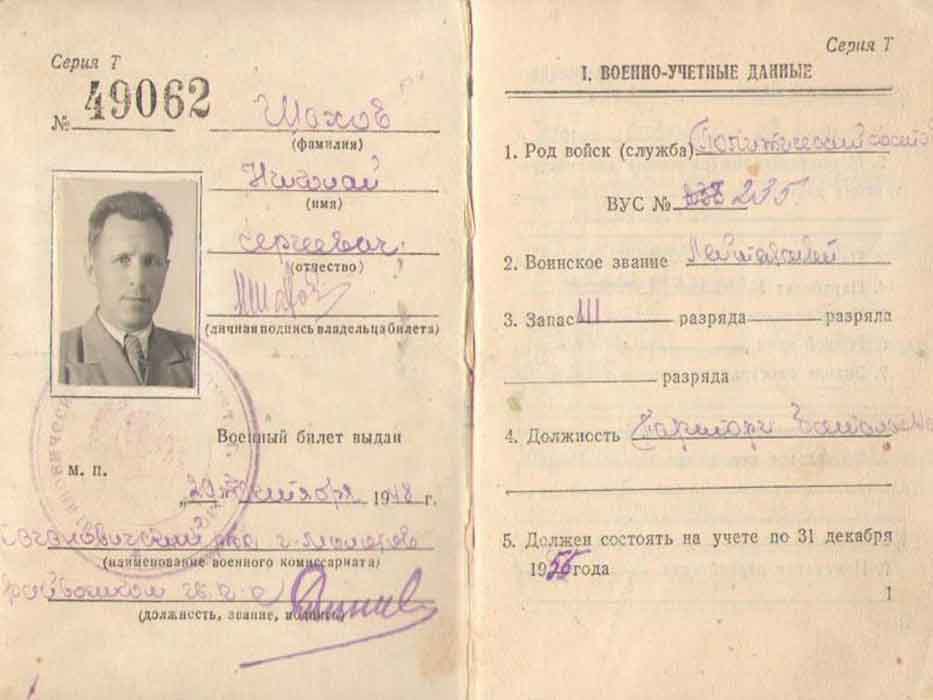 Серия Т
№ 49062
Шахов
(фамилия)
Николай
(имя)
Сергеевич
(отчество)
(личная подпись владельца билета)
Военный билет выдан
М. П.
„20“ октября 1948 г.
Кагановичский рвк г. Молотова
(наименование военного комиссариата)
(должность, звание, подпись)
Серия Т
I. ВОЕННО-УЧЕТНЫЕ ДАННЫЕ
1. Род войск (служба) Политический состав
ВУС № 235
2. Воинское звание Лейтенант
3. Запас III разряда разряда
разряда
4. Должность Парторг батальона
5. Должен состоять на учете по 31 декабря
1955 года
1